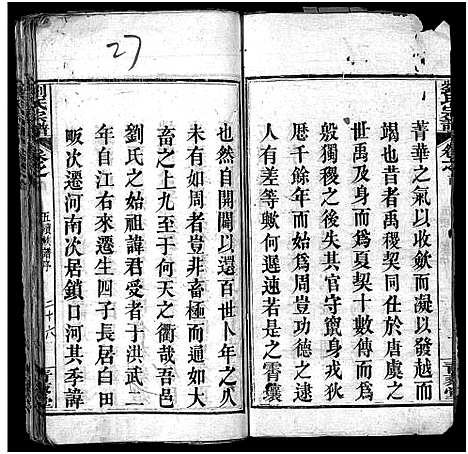 27
劉氏宗譜
菁華之氣以收歛而凝以發越而
竭也昔禹稷契同仕於唐虞之
世禹及身而為夏契十數傳而為
殷獨稷之後失其官守竄身戎狄
曆千餘年而周岂功德之逮
有差等歟何遲速若是之霄壤
也然自開闢以還百世卜年之久
未有如周者豈非畜極而通如大
畜之上九至于何天之衢哉吾邑
劉氏之始祖諱君受者于洪武二
年自江右來遷生四子長居白田
畈次遷河南次居鎖口河其季諱
劉氏宗譜
卷之
五續修譜序
二十六
青藜堂